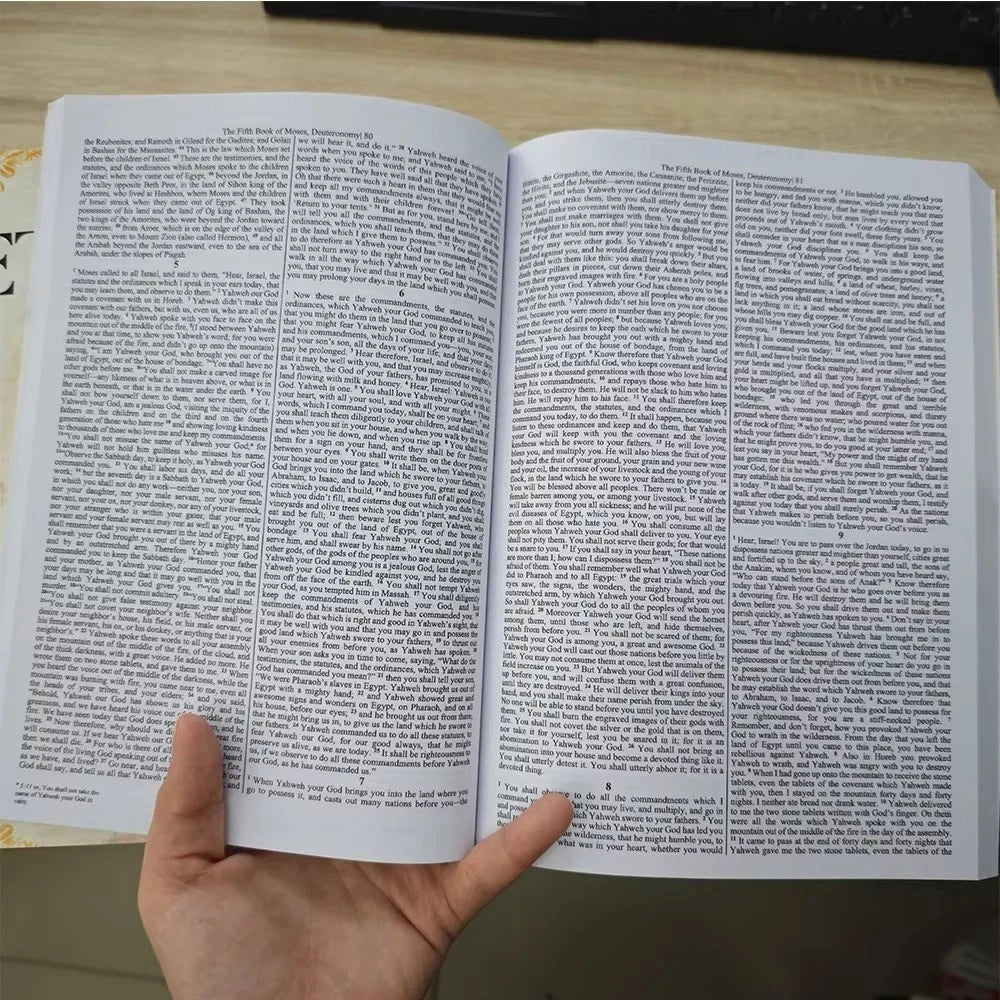 The Fifth Book of Moses, Deuteronomy| 80
the Reubenites; and Ramoth in Gilead for the Gadites; and Golan
in Bashan for the Manassites. 44 This is the law which Moses set
before the children of Israel. 45 These are the testimonies, and the
statutes, and the ordinances which Moses spoke to the children
of Israel when they came out of Egypt, 46 beyond the Jordan, in
the valley opposite Beth Peor, in the land of Sihon king of the
Amorites, who lived at Heshbon, whom Moses and the children
of Israel struck when they came out of Egypt. 47 They took
possession of his land and the land of Og king of Bashan, the
two kings of the Amorites, who were beyond the Jordan toward
the sunrise; 48 from Aroer, which is on the edge of the valley of
the Arnon, even to Mount Zion (also called Hermon), 49 and all
the Arabah beyond the Jordan eastward, even to the sea of the
Arabah, under the slopes of Pisgah
5
1 Moses called to all Israel, and said to them, "Hear, Israel, the
statutes and the ordinances which I speak in your ears today, that
you may learn them, and observe to do them." 2 Yahweh our God
made a covenant with us in Horeb. 3 Yahweh didn't make this
covenant with our fathers, but with us, even us, who are all of us
here alive today. 4 Yahweh spoke with you face to face on the
mountain out of the middle of the fire, 5 (I stood between Yahweh
and you at that time, to show you Yahweh's word; for you were
afraid because of the fire, and didn't go up onto the mountain)
saying, 6 "I am Yahweh your God, who brought you out of the
land of Egypt, out of the house of bondage. 7 "You shall have no
other gods before me. 8 "You shall not make a carved image for
yourself—any likeness of what is in heaven above, or what is in
the earth beneath, or that is in the water under the earth. 9 You
shall not bow yourself down to them, nor serve them, for I,
Yahweh your God, am a jealous God, visiting the iniquity of the
fathers on the children and on the third and on the fourth
generation of those who hate me 10 and showing loving kindness
to thousands of those who love me and keep my commandments
11 "You shall not misuse the name of Yahweh your God;* for
Yahweh will not hold him guiltless who misuses his name.
12 "Observe the Sabbath day, to keep it holy, as Yahweh your God
commanded you. 13 You shall labor six days, and do all your
work; 14 but the seventh day is a Sabbath to Yahweh your God,
in which you shall not do any work—neither you, nor your son,
nor your daughter, nor your male servant, nor your female
servant, nor your ox, nor your donkey, nor any of your livestock,
nor your stranger who is within your gates; that your male
servant and your female servant may rest as well as you. 15 You
shall remember that you were a servant in the land of Egypt, and
Yahweh your God brought you out of there by a mighty hand
and by an outstretched arm. Therefore Yahweh your God
commanded you to keep the Sabbath day. 16 "Honor your father
and your mother, as Yahweh your God commanded you, that
your days may be long and that it may go well with you in the
land which Yahweh your God gives you. 17 "You shall not
murder. 18 "You shall not commit adultery. 19 "You shall not steal.
20 "You shall not give false testimony against your neighbor.
21 "You shall not covet your neighbor's wife. Neither shall you
desire your neighbor's house, his field, or his male servant, or
his female servant, his ox, or his donkey, or anything that is your
neighbor's." 22 Yahweh spoke these words to all your assembly
on the mountain out of the middle of the fire, of the cloud, and
of the thick darkness, with a great voice. He added no more. He
wrote them on two stone tablets, and gave them to me. 23 When
you heard the voice out of the middle of the darkness, while the
mountain was burning with fire, you came near to me, even all
the heads of your tribes, and your elders; 24 and you said,
"Behold, Yahweh our God has shown us his glory and his
greatness, and we have heard his voice out of the middle of the
fire. We have seen today that God does
lives. 25 Now therefore, why should we die?
will consume us. If we hear Yahweh our God's
then we shall die. 26 For who is there of all
the voice of the living God speaking out of
as we have, and lived? 27 Go near, and hear
God shall say, and tell us all that Yahweh
* 5:11 or, You shall not take the
name of Yahweh your God in
vain;
we will hear it, and do it." 28 Yahweh heard the voice of your
words when you spoke to me; and Yahweh said to me, "I have
heard the voice of the words of this people which they have
spoken to you. They have well said all that they have spoken. 29
Oh that there were such a heart in them that they would fear me
and keep all my commandments always, that it might be well
with them and with their children forever! 30 Go tell them,
'Return to your tents.' 31 But as for you, stand here by me, and I
will tell you all the commandments, and the statutes, and the
ordinances, which you shall teach them, that they may do them
in the land which I give them to possess." 32 You shall observe
to do therefore as Yahweh your God has commanded you. You
shall not turn away to the right hand or to the left. 33 You shall
walk in all the way which Yahweh your God has commanded
you, that you may live and that it may be well with you, and that
you may prolong your days in the land which you shall possess
6
1 Now these are the commandments, the statutes, and the
ordinances, which Yahweh your God commanded to teach you,
that you might do them in the land that you go over to possess;
2 that you might fear Yahweh your God, to keep all his statutes
and his commandments, which I command you—you, your son,
and your son's son, all the days of your life; and that your days
may be prolonged. 3 Hear therefore, Israel, and observe to do it,
that it may be well with you, and that you may increase mightily,
as Yahweh, the God of your fathers, has promised to you, in a
land flowing with milk and honey. 4 Hear, Israel: Yahweh is our
God. Yahweh is one. 5 You shall love Yahweh your God with all
your heart, with all your soul, and with all your might. 6 These
words, which I command you today, shall be on your heart; 7 and
you shall teach them diligently to your children, and shall talk of
them when you sit in your house, and when you walk by the way,
and when you lie down, and when you rise up. 8 You shall bind
them for a sign on your hand, and they shall be for frontlets
between your eyes. 9 You shall write them on the door posts of
your house and on your gates. 10 It shall be, when Yahweh your
God brings you into the land which he swore to your fathers, to
Abraham, to Isaac, and to Jacob, to give you, great and goodly
cities which you didn't build, 11 and houses full of all good things
which you didn't fill, and cisterns dug out which you didn't dig,
vineyards and olive trees which you didn't plant, and you shall
eat and be full; 12 then beware lest you forget Yahweh, who
brought you out of the land of Egypt, out of the house of
bondage. 13 You shall fear Yahweh your God; and you shall
serve him, and shall swear by his name. 14 You shall not go after
other gods, of the gods of the peoples who are around you, 15 for
Yahweh your God among you is a jealous God, lest the anger of
Yahweh your God be kindled against you, and he destroy you
from off the face of the earth. 16 You shall not tempt Yahweh
your God, as you tempted him in Massah. 17 You shall diligently
keep the commandments of Yahweh your God, and his
testimonies, and his statutes, which he has commanded you. 18
You shall do that which is right and good in Yahweh's sight, that
it may be well with you and that you may go in and possess the
good land which Yahweh swore to your fathers, 19 to thrust out
all your enemies from before you, as Yahweh has spoken. 20
When your son asks you in time to come, saying, "What do the
testimonies, the statutes, and the ordinances, which Yahweh our
God has commanded you mean?" 21 then you shall tell your son,
"We were Pharaoh's slaves in Egypt. Yahweh brought us out of
Egypt with a mighty hand; 22 and Yahweh showed great and
awesome signs and wonders on Egypt, on Pharaoh, and on all
his house, before our eyes; 23 and he brought us out from there,
that he might bring us in, to give us the land which he swore to
our fathers. 24 Yahweh commanded us to do all these statutes, to
fear Yahweh our God, for our good always, that he might
preserve us alive, as we are today. 25 It shall be righteousness to
us, if we observe to do all these commandments before Yahweh
our God, as he has commanded us."
7
1 When Yahweh your God brings you into the land where you
go to possess it, and casts out many nations before you—the
The Fifth Book of Moses, Deuteronomy| 81
Hittite, the Girgashite, the Amorite, the Canaanite, the Perizzite,
the Hivite, and the Jebusite—seven nations greater and mightier
than you; 2 and when Yahweh your God delivers them up before
you, and you strike them, then you shall utterly destroy them.
You shall make no covenant with them, nor show mercy to them.
3 You shall not make marriages with them. You shall not give
your daughter to his son, nor shall you take his daughter for your
son. 4 For that would turn away your sons from following me,
that they may serve other gods. So Yahweh's anger would be
kindled against you, and he would destroy you quickly. 5 But you
shall deal with them like this: you shall break down their altars,
dash their pillars in pieces, cut down their Asherah poles, and
burn their engraved images with fire. 6 For you are a holy people
to Yahweh your God. Yahweh your God has chosen you to be a
people for his own possession, above all peoples who are on the
face of the earth. 7 Yahweh didn't set his love on you nor choose
you, because you were more in number than any people; for you
were the fewest of all peoples; 8 but because Yahweh loves you,
and because he desires to keep the oath which he swore to your
fathers, Yahweh has brought you out with a mighty hand and
redeemed you out of the house of bondage, from the hand of
Pharaoh king of Egypt. 9 Know therefore that Yahweh your God
himself is God, the faithful God, who keeps covenant and loving
kindness to a thousand generations with those who love him and
keep his commandments, 10 and repays those who hate him to
their face, to destroy them. He will not be slack to him who hates
him. He will repay him to his face. 11 You shall therefore keep
the commandments, the statutes, and the ordinances which I
command you today, to do them. 12 It shall happen, because you
listen to these ordinances and keep and do them, that Yahweh
your God will keep with you the covenant and the loving
kindness which he swore to your fathers. 13 He will love you,
bless you, and multiply you. He will also bless the fruit of your
body and the fruit of your ground, your grain and your new wine
and your oil, the increase of your livestock and the young of your
flock, in the land which he swore to your fathers to give you. 14
You will be blessed above all peoples. There won't be male or
female barren among you, or among your livestock. 15 Yahweh
will take away from you all sickness; and he will put none of the
evil diseases of Egypt, which you know, on you, but will lay
them on all those who hate you. 16 You shall consume all the
peoples whom Yahweh your God shall deliver to you. Your eye
shall not pity them. You shall not serve their gods; for that would
be a snare to you. 17 If you shall say in your heart, "These nations
are more than I; how can I dispossess them?" 18 you shall not be
afraid of them. You shall remember well what Yahweh your God
did to Pharaoh and to all Egypt: 19 the great trials which your
eyes saw, the signs, the wonders, the mighty hand, and the
outstretched arm, by which Yahweh your God brought you out.
So shall Yahweh your God do to all the peoples of whom you
are afraid. 20 Moreover Yahweh your God will send the hornet
among them, until those who are left, and hide themselves,
perish from before you. 21 You shall not be scared of them; for
Yahweh your God is among you, a great and awesome God. 22
Yahweh your God will cast out those nations before you little by
little. You may not consume them at once, lest the animals of the
field increase on you. 23 But Yahweh your God will deliver them
up before you, and will confuse them with a great confusion,
until they are destroyed. 24 He will deliver their kings into your
hand, and you shall make their name perish from under the sky.
No one will be able to stand before you until you have destroyed
them. 25 You shall burn the engraved images of their gods with
fire. You shall not covet the silver or the gold that is on them,
nor take it for yourself, lest you be snared in it; for it is an
abomination to Yahweh your God. 26 You shall not bring an
abomination into your house and become a devoted thing like it.
You shall utterly detest it. You shall utterly abhor it; for it is a
devoted thing.
8
1 You shall observe to do all the commandments which I
command you that you may live, and multiply, and go in
which Yahweh swore to your fathers. 2 You
way which Yahweh your God has led you
the wilderness, that he might humble you, to
what was in your heart, whether you would
keep his commandments or not. 3 He humbled you, allowed you
to be hungry, and fed you with manna, which you didn't know,
neither did your fathers know, that he might teach you that man
does not live by bread only, but man lives by every word that
proceeds out of Yahweh's mouth. 4 Your clothing didn't grow
old on you, neither did your foot swell, these forty years. 5 You
shall consider in your heart that as a man disciplines his son, so
Yahweh your God disciplines you. 6 You shall keep the
commandments of Yahweh your God, to walk in his ways, and
to fear him. 7 For Yahweh your God brings you into a good land,
a land of brooks of water, of springs, and underground water
flowing into valleys and hills; 8 a land of wheat, barley, vines,
fig trees, and pomegranates; a land of olive trees and honey; 9 a
land in which you shall eat bread without scarcity, you shall not
lack anything in it; a land whose stones are iron, and out of
whose hills you may dig copper. 10 You shall eat and be full, and
you shall bless Yahweh your God for the good land which he has
given you. 11 Beware lest you forget Yahweh your God, in not
keeping his commandments, his ordinances, and his statutes,
which I command you today; 12 lest, when you have eaten and
are full, and have built fine houses and lived in them; 13 and when
your herds and your flocks multiply, and your silver and your
gold is multiplied, and all that you have is multiplied; 14 then
your heart might be lifted up, and you forget Yahweh your God,
who brought you out of the land of Egypt, out of the house of
bondage; 15 who led you through the great and terrible
wilderness, with venomous snakes and scorpions, and thirsty
ground where there was no water; who poured water for you out
of the rock of flint; 16 who fed you in the wilderness with manna,
which your fathers didn't know, that he might humble you, and
that he might prove you, to do you good at your latter end; 17 and
lest you say in your heart, "My power and the might of my hand
has gotten me this wealth." 18 But you shall remember Yahweh
your God, for it is he who gives you power to get wealth, that he
may establish his covenant which he swore to your fathers, as it
is today. 19 It shall be, if you shall forget Yahweh your God, and
walk after other gods, and serve them and worship them, I testify
against you today that you shall surely perish. 20 As the nations
that Yahweh makes to perish before you, so you shall perish,
because you wouldn't listen to Yahweh your God's voice.
9
1 Hear, Israel! You are to pass over the Jordan today, to go in to
dispossess nations greater and mightier than yourself, cities great
and fortified up to the sky, 2 a people great and tall, the sons of
the Anakim, whom you know, and of whom you have heard say,
"Who can stand before the sons of Anak?" 3 Know therefore
today that Yahweh your God is he who goes over before you as
a devouring fire. He will destroy them and he will bring them
down before you. So you shall drive them out and make them
perish quickly, as Yahweh has spoken to you. 4 Don't say in your
heart, after Yahweh your God has thrust them out from before
you, "For my righteousness Yahweh has brought me in to
possess this land;" because Yahweh drives them out before you
because of the wickedness of these nations. 5 Not for your
righteousness or for the uprightness of your heart do you go in
to possess their land; but for the wickedness of these nations
Yahweh your God does drive them out from before you, and that
he may establish the word which Yahweh swore to your fathers,
to Abraham, to Isaac, and to Jacob. 6 Know therefore that
Yahweh your God doesn't give you this good land to possess for
your righteousness, for you are a stiff-necked people. 7
Remember, and don't forget, how you provoked Yahweh your
God to wrath in the wilderness. From the day that you left the
land of Egypt until you came to this place, you have been
rebellious against Yahweh. 8 Also in Horeb you provoked
Yahweh to wrath, and Yahweh was angry with you to destroy
you. 9 When I had gone up onto the mountain to receive the stone
tablets, even the tablets of the covenant which Yahweh made
with you, then I stayed on the mountain forty days and forty
nights. I neither ate bread nor drank water. 10 Yahweh delivered
to me the two stone tablets written with God's finger. On them
were all the words which Yahweh spoke with you on the
mountain out of the middle of the fire in the day of the assembly.
11 It came to pass at the end of forty days and forty nights that
Yahweh gave me the two stone tablets, even the tablets of the